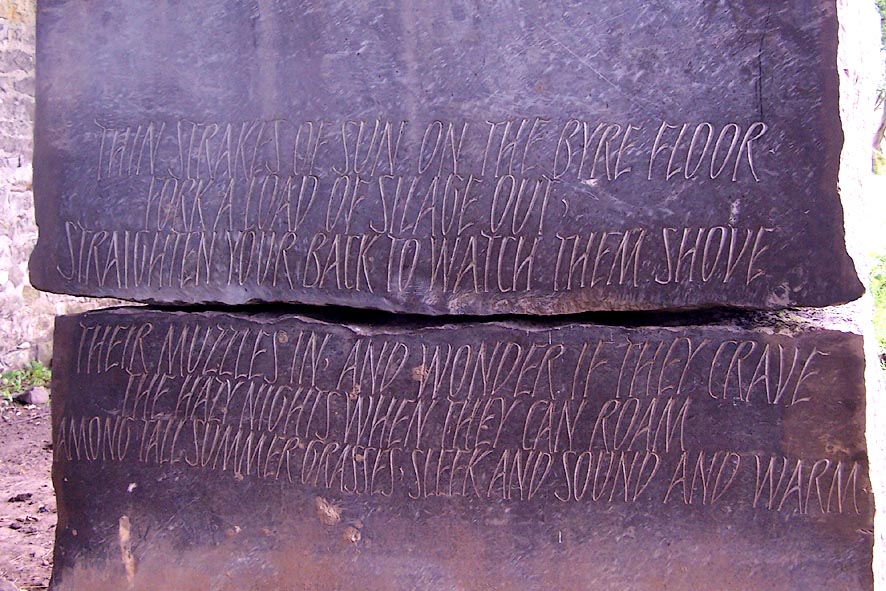 THIN STRAKES OF SUN ON THE BYRE FLOOR
FORK A LOAD OF SILAGE OUT,
STRAIGHTEN YOUR BACK TO WATCH THEM SHOVE
THEIR MUZZLES IN, AND WONDER IF THEY CRAVE
THE HAZY NIGHTS WHEN THEY CAN ROAM
AMONG TALL SUMMER GRASSES, SLEEK AND SOUND AND WARM.